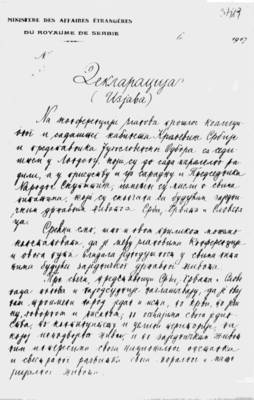 MINISTÈRE DES AFFAIRES ÉTRANGÈRES
DU ROYAUME DE SERBIE
191
№
Декларација
(Изјава)
На конференцији чланова прошлог коалици-
оног и садашњег кабинета Краљевине Србије
и представника Југословенског Одбора са седи-
штем у Лондону, који су до сада паралелно ра-
дили, а у присуству и уз сарадњу и Председника
Народне Скупштине, су мисли о свима
питањима, која са будућим заједни-
чким државним животом Срба, Хрвата и Словена-
ца.
Сретни смо, што и овом приликом можемо
констатовати, да је међу члановима Конференције
и овога пута владала једнодушност у свима пита-
њима будућег заједничког државног живота.
Пре свега, представници Срба, Хрвата и Слове-
наца поново и најодсудније наглашавају, да је овај
наш троимени народ један и исти, по крви, по јези-
ку, говорном и писаном, по осећајима свога једин-
ства, по континуитету и целини територије, на
којој неподвојено живи, и по заједничким живот-
ним интересима свога националног опстанка
и свестраног развитка свога моралног и мате-
ријалног живота.